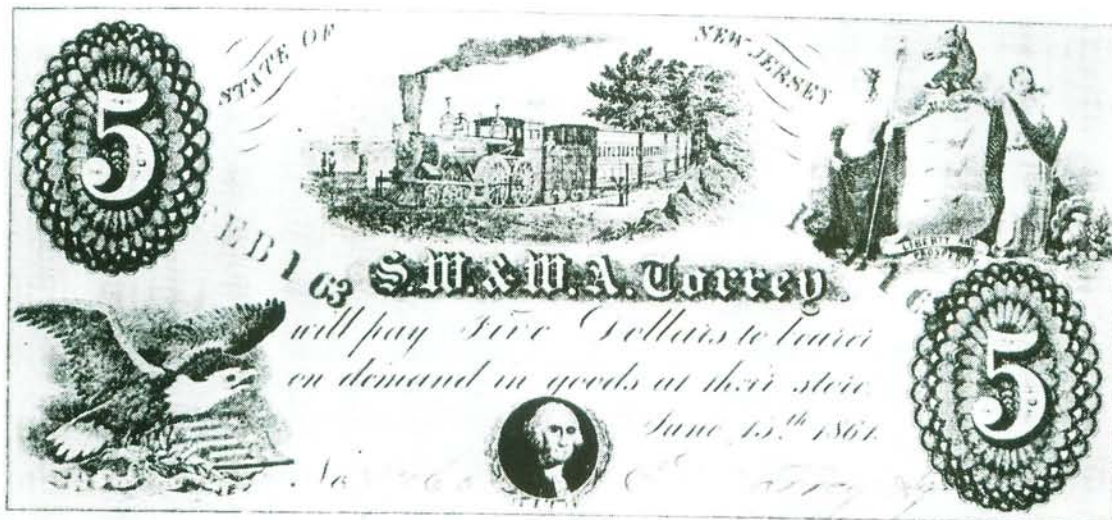 5
STATE OF NEW JERSEY
LIBERTY AND
PROSPERITY
FEB 1 63
S.W. & W.A. Torrey.
will pay Five Dollars to bearer
on demand in goods at their store.
June 15th 1861.
No
5